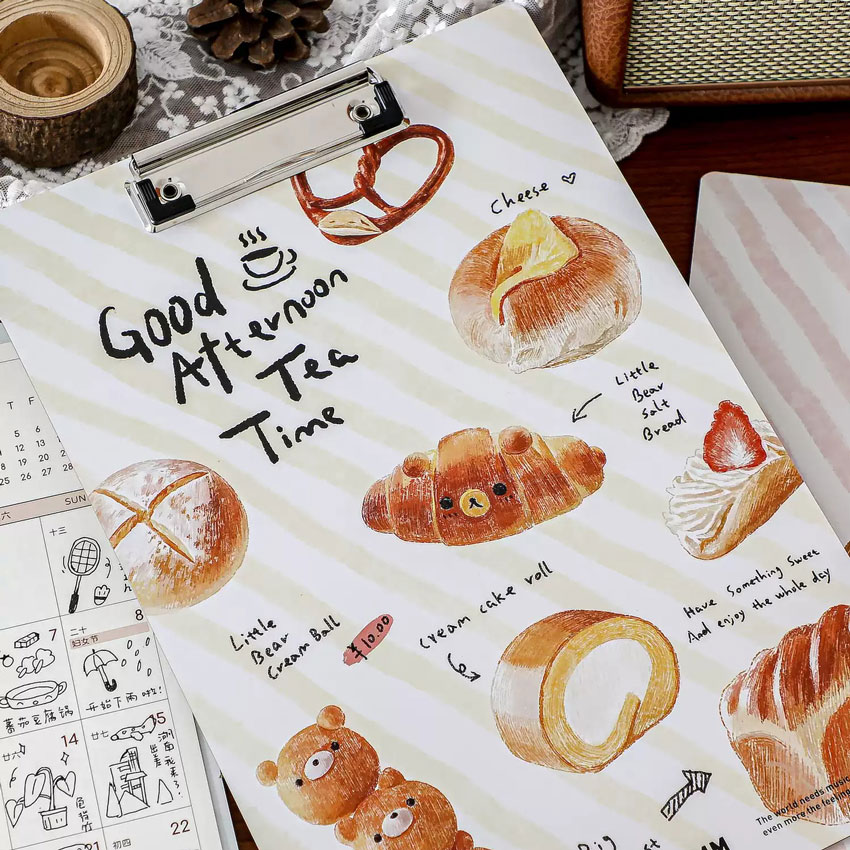 Good
Afternoon
Tea
Time
Cheese ♡
Little
Bear
Salt
Bread
Have Something Sweet
And enjoy the whole day
Little
Bear
Cream Ball
¥10.00
cream cake roll
The world needs music
even more the feeling
T F
5 6
12 13
18 19 20 21
25 26 27 28
SUN
六
十三
7
8
二十
妇女节
番茄豆腐锅
开始下雨啦!
14
廿六
15
廿七
21
22
初四